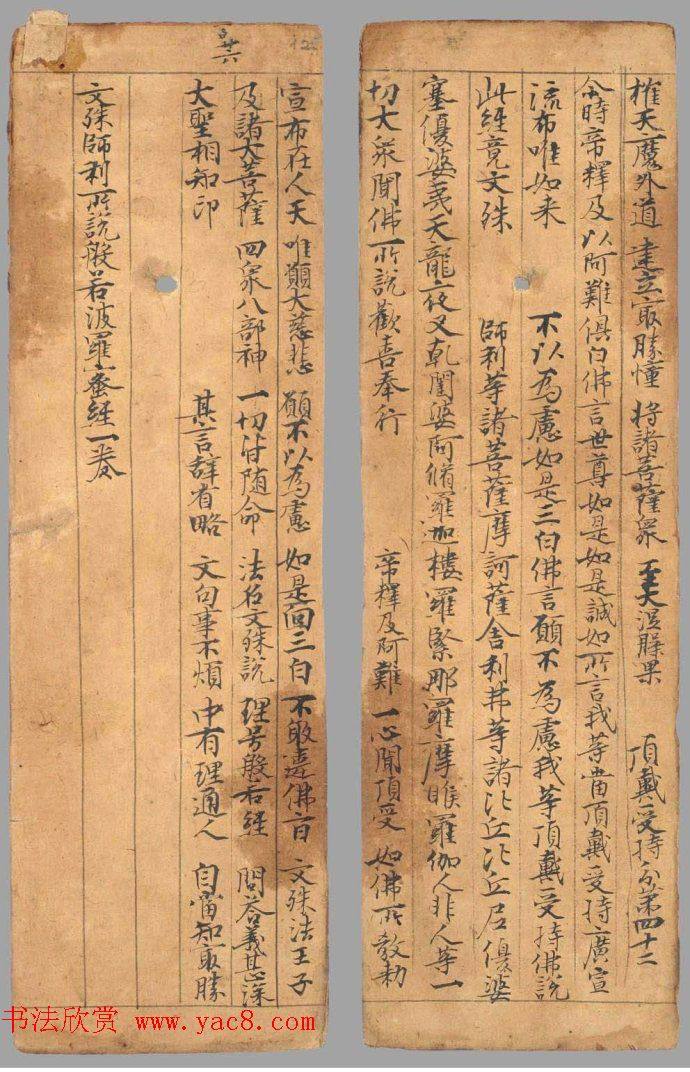 摧天魔外道 建立冣勝幢 將諸菩薩衆 至大涅槃果 頂戴受持分第四十二
尒時帝釋及以阿難俱白佛言世尊如是如是誠如所言我等當頂戴受持廣宣
流布唯如来 不以為慮如是三白佛言願不為慮我等頂戴受持佛說
此經竟文殊 師利等諸菩薩摩訶薩舍利弗等諸比丘比丘尼優婆
塞優婆夷天龍夜叉乾闥婆阿脩羅迦樓羅緊那羅摩睺羅伽人非人等一
切大衆聞佛所說歡喜奉行 帝釋及阿難 一心聞頂受 如佛所教勑
廿六
宣布在人天 唯願大慈悲 願不以為慮 如是回三白 不敢違佛言 文殊法王子
及諸大菩薩 四衆八部神 一切皆随命 法名文殊說 經号般若經 問荅義甚深
大聖相知印 其言辞省略 文句事不煩 中有理通人 自當知冣勝
文殊師利所說般若波羅蜜經一卷
书法欣赏 www.yac8.com